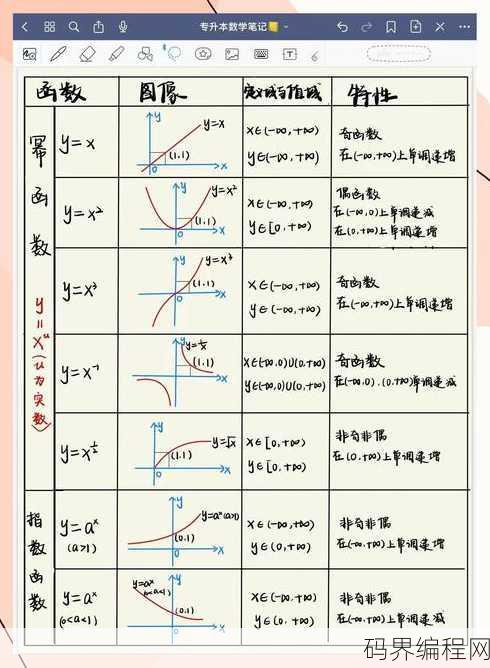 专升本数学笔记
函数 图像 定义域与值域 特性
幂函数 y=xᵘ(u为实数)
y=x
y=x
(1,1)
x∈(-∞,+∞)
y∈(-∞,+∞)
奇函数
在(-∞,+∞)上单调递增
y=x²
y=x²
(1,1)
x∈(-∞,+∞)
y∈[0,+∞)
偶函数
在(-∞,0)上单调递减
在(0,+∞)上单调递增
y=x³
y=x³
(1,1)
x∈(-∞,+∞)
y∈(-∞,+∞)
奇函数
在(-∞,+∞)上单调递增
y=x⁻¹
y=1/x
(1,1)
x∈(-∞,0)∪(0,+∞)
y∈(-∞,0)∪(0,+∞)
奇函数
在(-∞,0).(0,+∞)单调递减
y=x^½
y=√x
(1,1)
x∈[0,+∞)
y∈[0,+∞)
非奇非偶
在(0,+∞)上单调递增
指数函数
y=aˣ
(a>1)
y=aˣ(a>1)
(0,1)
x∈(-∞,+∞)
y∈(0,+∞)
非奇非偶
在(-∞,+∞)上单调递增
y=aˣ
(0<a<1)
y=aˣ
(0<a<1)
(0,1)
x∈(-∞,+∞)
y∈(0,+∞)
非奇非偶
在(-∞,+∞)上单调递减
码界编程网